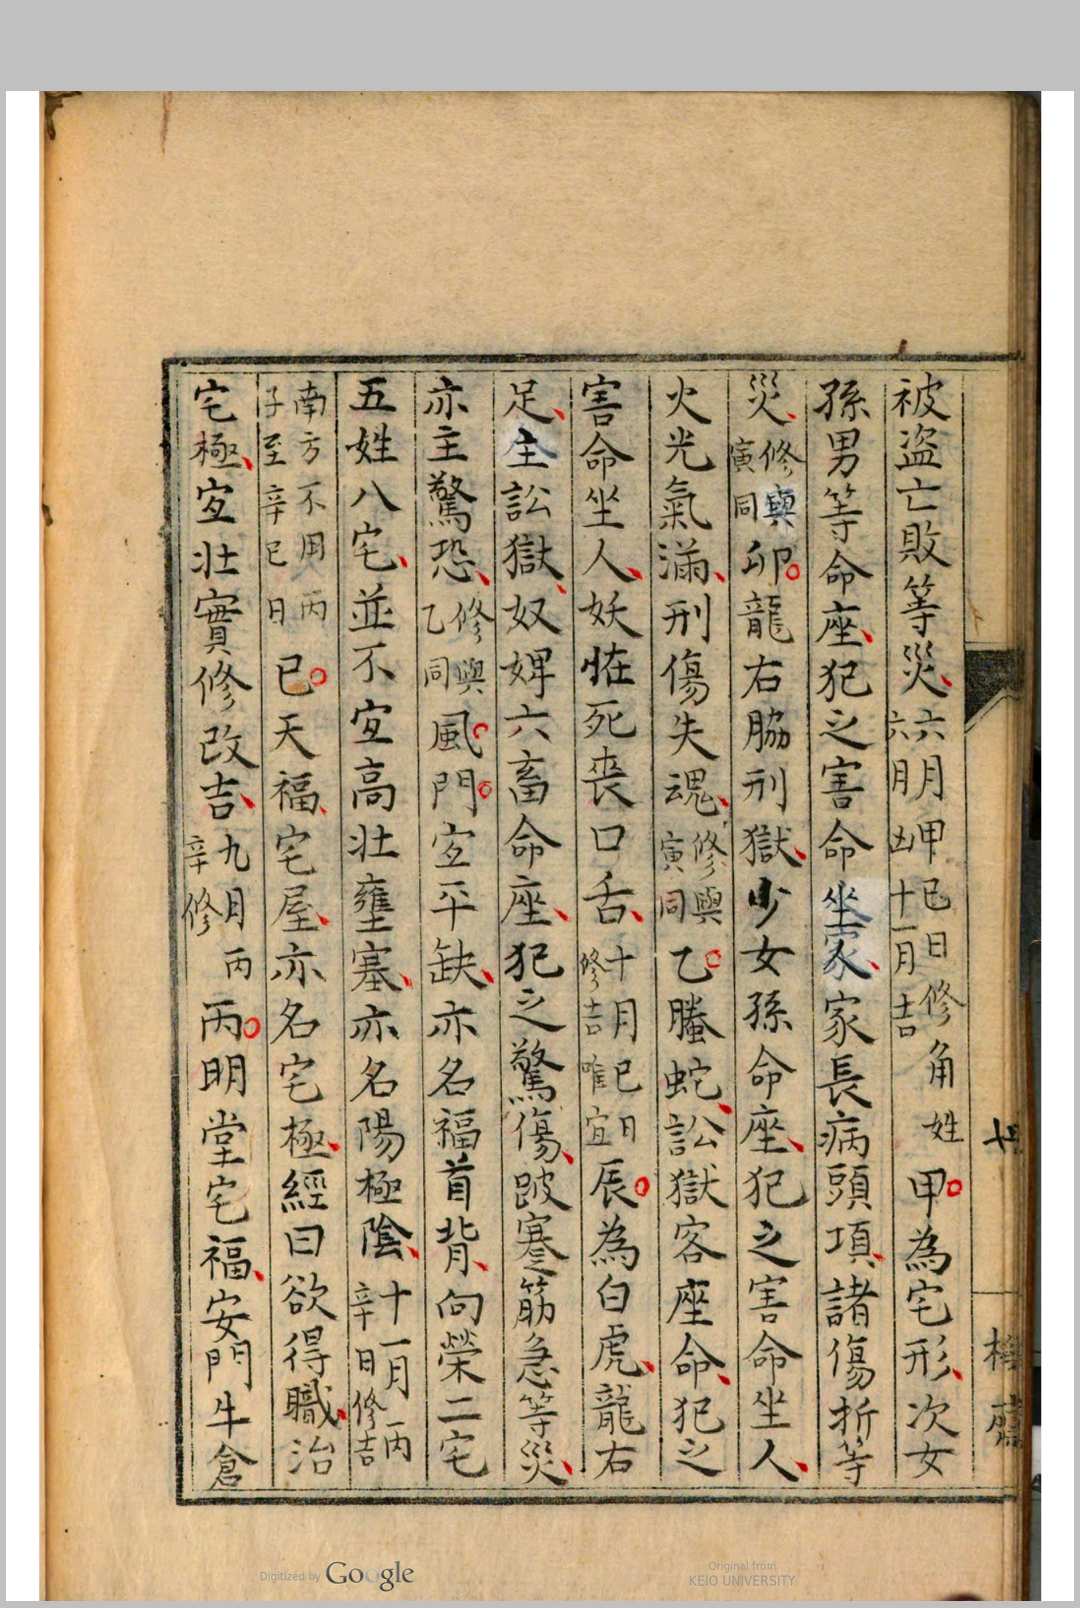 被盜亡敗等災、六月甲巳日修角姓六月凶十一月吉甲。為宅形、次女
孫男等命座、犯之害命坐家、家長病頭項、諸傷折等
災、修與寅同卯。龍右脇刑獄、少女孫命座、犯之害命坐人、
火光氣滿、刑傷失魂、修與寅同乙。螣蛇、訟獄客座命、犯之
害命坐人、妖恠死喪口舌、十月巳日修吉唯宜辰。為白虎、龍右
足、主訟獄、奴婢六畜命座、犯之驚傷、跛蹇筋急等災、
亦主驚恐、修與乙同風。門。宜平缺、亦名福首背、向榮二宅
五姓八宅、並不宜高壯壅塞、亦名陽極陰、十一月丙辛日修吉
南方不用丙子至辛巳日巳。天福、宅屋、亦名宅極、經曰欲得職、治
宅極、宜壯實修改吉、九月丙辛修丙。明堂宅福、安門牛倉
Digitized by Google
Original from
KEIO UNIVERSITY